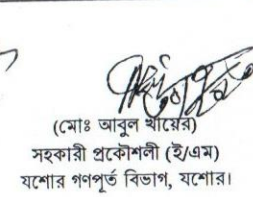 (মোঃ আবুল খায়ের)
সহকারী প্রকৌশলী (ই/এম)
যশোর গণপূর্ত বিভাগ, যশোর।